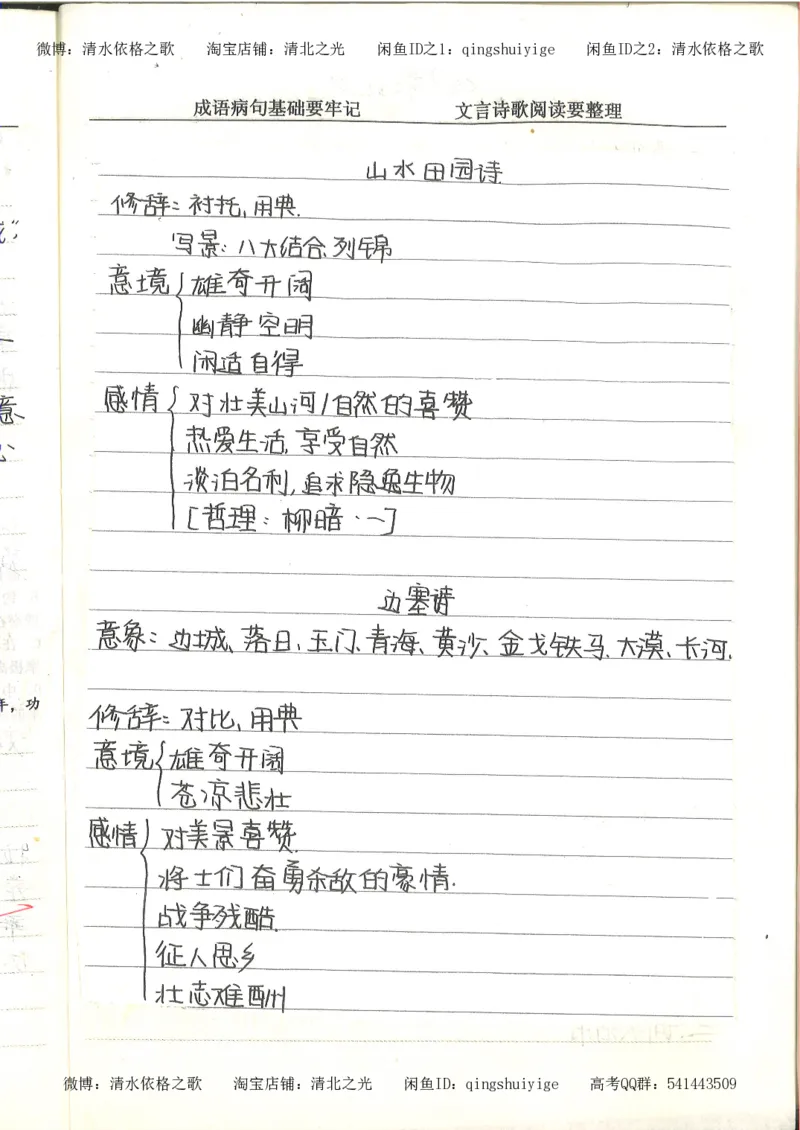 微博：清水依格之歌 淘宝店铺：清北之光 闲鱼ID之1：qingshuiyige 闲鱼ID之2：清水依格之歌
成语病句基础要牢记 文言诗歌阅读要整理
山水田园诗
修辞：衬托，用典．
写景：八大结合、列锦
意境{雄奇开阔
幽静空明
闲适自得
感情{对壮美山河/自然的喜赞
热爱生活，享受自然
淡泊名利，追求隐逸生物
[哲理：柳暗…]
边塞诗
意象：边城、落日、玉门、青海、黄沙、金戈铁马、大漠、长河．
年，功
修辞：对比，用典
意境{雄奇开阔
苍凉悲壮
感情{对美景喜赞．
将士们奋勇杀敌的豪情．
战争残酷．
征人思乡
壮志难酬
微博：清水依格之歌 淘宝店铺：清北之光 闲鱼ID：qingshuiyige 高考QQ群：541443509